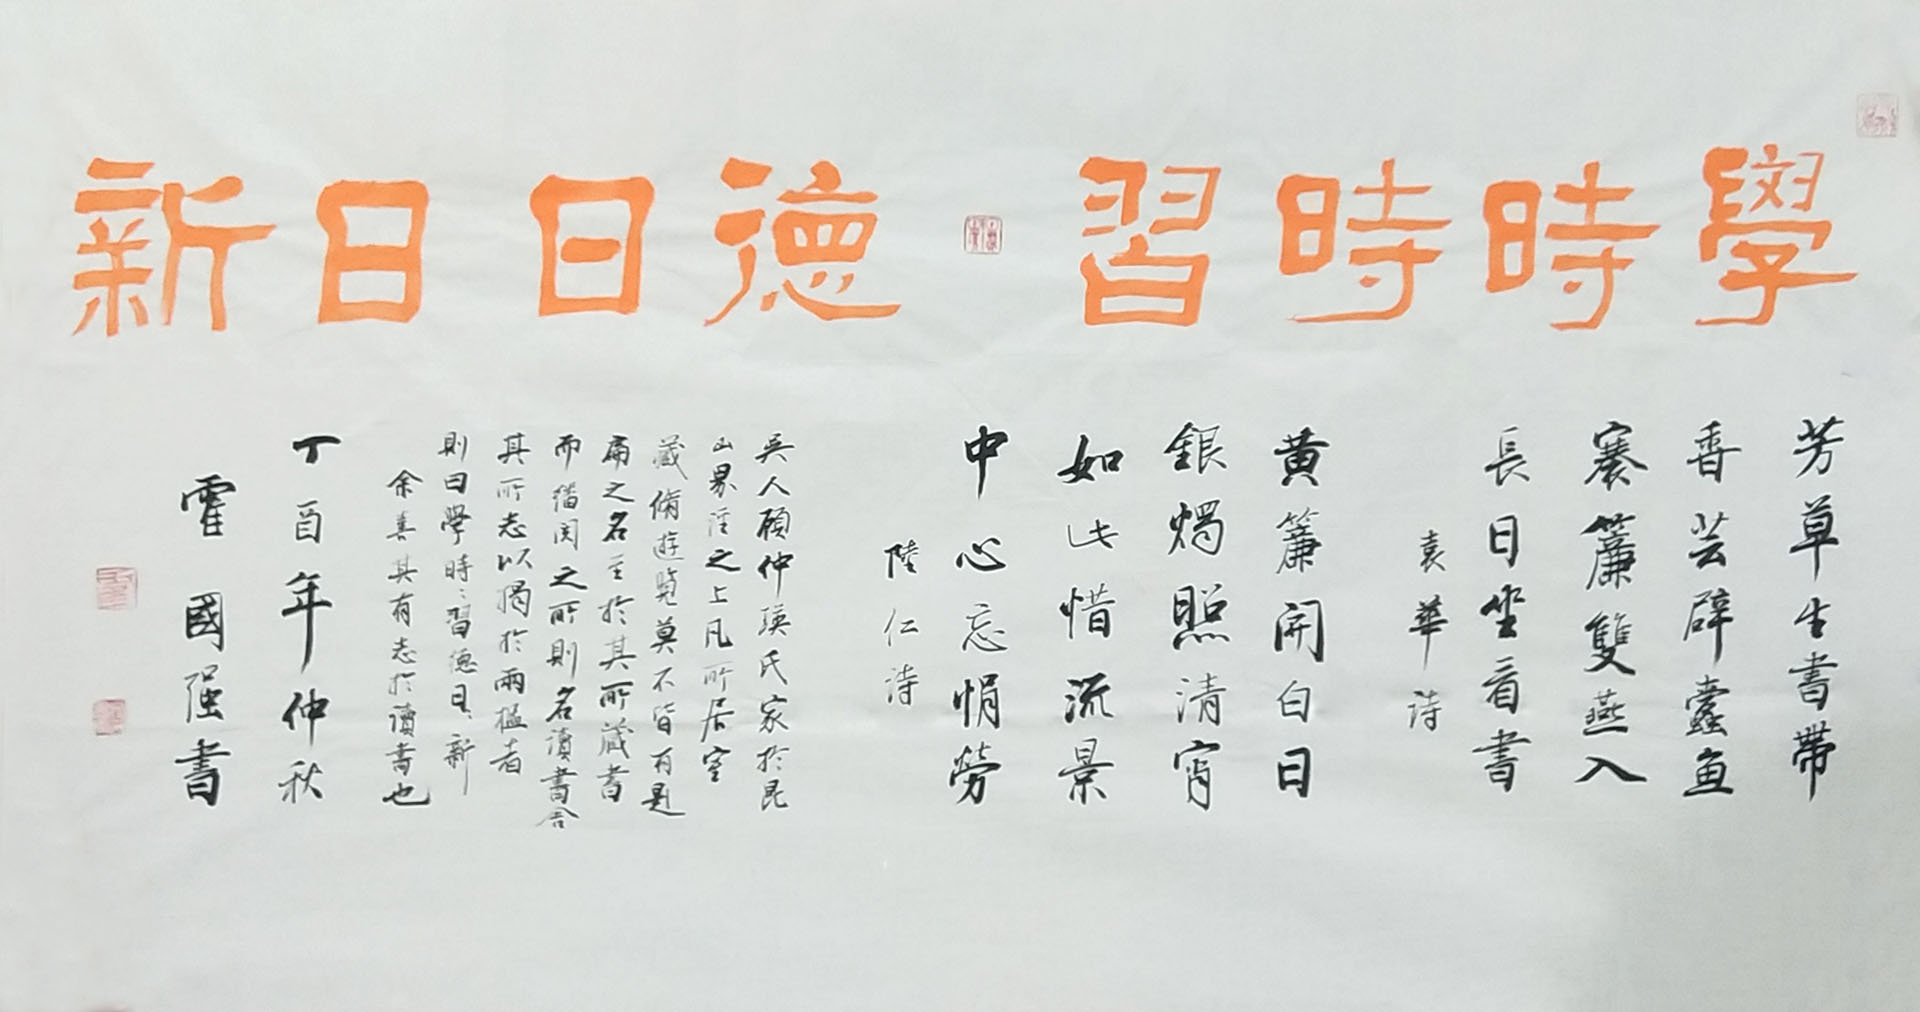 學時時習
德日日新
芳草生書帶
香芸辟蠹鱼
褰簾雙燕入
長日坐看書
袁華詩
黄簾開白日
銀燭照清宵
如此惜流景
中心忘悁勞
陸仁詩
吳人顧仲瑛氏家於昆
山界涇之上凡所居室
藏脩遊覽莫不皆有題
扁之名至於其所藏書
而繙閱之所則名讀書舍
其所志以揭於兩楹者
則曰學時〻習德日〻新
余喜其有志於讀書也
丁酉年仲秋
霍國强書